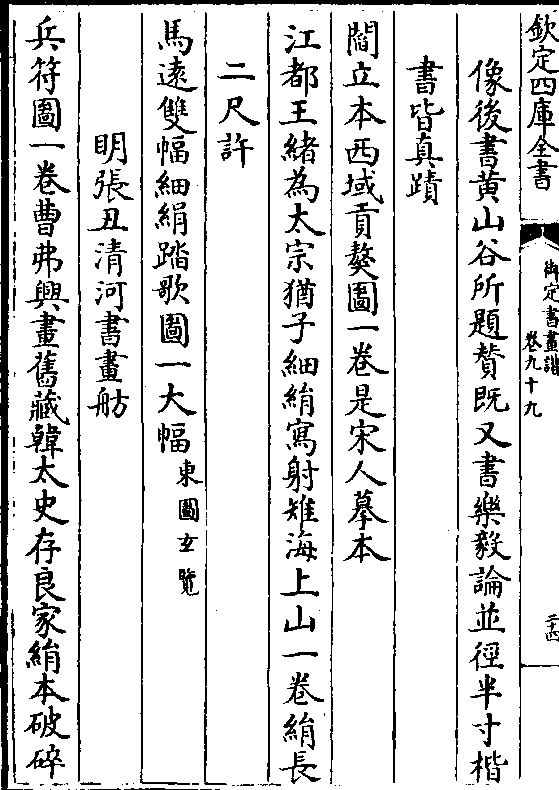 欽定四庫全書
御定書畫譜
卷九十九
二十四
像後書黄山谷所題贊既又書樂毅論並徑半寸楷
書皆真蹟
閻立本西域貢獒圖一卷是宋人摹本
江都王緒為太宗猶子細絹寫射雉海上山一卷絹長
二尺許
馬逺雙幅細絹踏歌圖一大幅東圖玄覽
明張丑清河書畫舫
兵符圖一卷曹弗興畫舊藏韓太史存良家絹本破碎